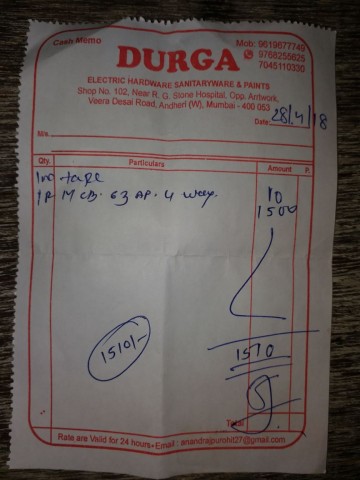 Cash Memo
Mob: 9619677749
9768255625
7045110330
DURGA
ELECTRIC HARDWARE SANITARYWARE & PAINTS
Shop No. 102, Near R. G. Stone Hospital, Opp. Antwork,
Veera Desai Road, Andheri (W), Mumbai - 400 053
Date: 28/4/18
M/s.
Qty. Particulars Amount P.
1no tape 10
1P MCB. 63 AP. 4 way. 1500
1510/-
1510
Total
Rate are Valid for 24 hours • Email : anandrajpurohit27@gmail.com